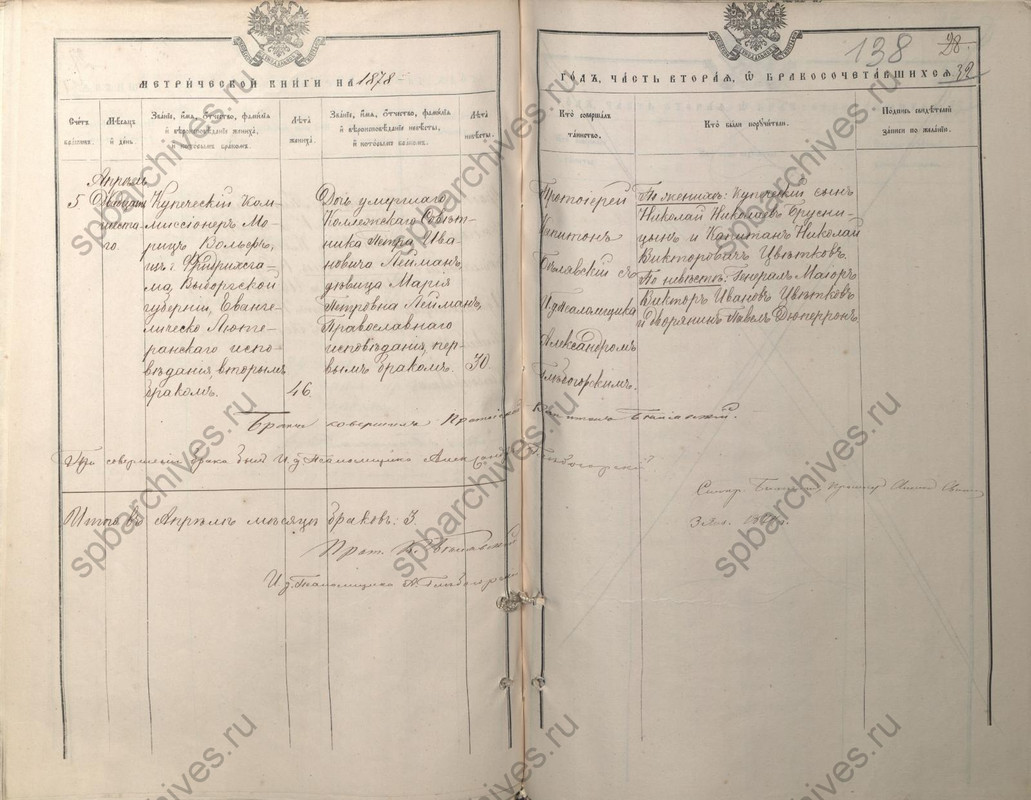 138 28.
32
МЕТРИЧЕСКОЙ КНИГИ НА 1878
ГОДЪ, ЧАСТЬ ВТОРАЯ, Ѡ БРАКОСОЧЕТАВШИХСЯ.
Счетъ
браковъ.
Мѣсяцъ
и день.
Званіе, имя, отчество, фамилія
и вѣроисповѣданіе жениха,
и которымъ бракомъ.
Лѣта
жениха.
Званіе, имя, отчество, фамилія
и вѣроисповѣданіе невѣсты,
и которымъ бракомъ.
Лѣта
невѣсты.
Кто совершалъ
таинство.
Кто были поручители.
Подпись свидѣтелей
записи по желанію.
5
Апрѣль
Двадцать
шеста-
го.
Купеческій Ком-
миссіонеръ Мо-
рицъ Вольфъ,
изъ г. Фридрихсга-
ма, Выборгской
губерніи, Еванге-
лическо Люте-
ранскаго испо-
вѣданія, вторымъ
бракомъ.
46.
Дочь умершаго
Коллежскаго Совѣт-
ника Петра Ива-
новича Лейманъ,
дѣвица Марія
Петровна Лейманъ,
Православнаго
исповѣданія, пер-
вымъ бракомъ.
30
Протоіерей
Капитонъ
Бѣлявскій съ
И.д. Псаломщика
Александромъ
Глѣбогорскимъ.
По женихѣ: Купеческій сынъ
Николай Николаевъ Брусни-
цынъ и Капитанъ Николай
Викторовичъ Цвѣтковъ.
По невѣстѣ: Генералъ Маіоръ
Викторъ Ивановъ Цвѣтковъ
и Дворянинъ Павелъ Дюперронъ.
Бракъ совершилъ Протоіерей Капитонъ Бѣлявскій.
При совершеніи брака былъ И.д. Псаломщика Александръ Глѣбогорскій
Итого въ Апрѣлѣ мѣсяцѣ браковъ: 3.
Прот. К. Бѣлявскій
И.д. Псаломщика А. Глѣбогорскій
spbarchives.ru
spbarchives.ru
spbarchives.ru
spbarchives.ru
spbarchives.ru
spbarchives.ru
spbarchives.ru
spbarchives.ru
spbarchives.ru